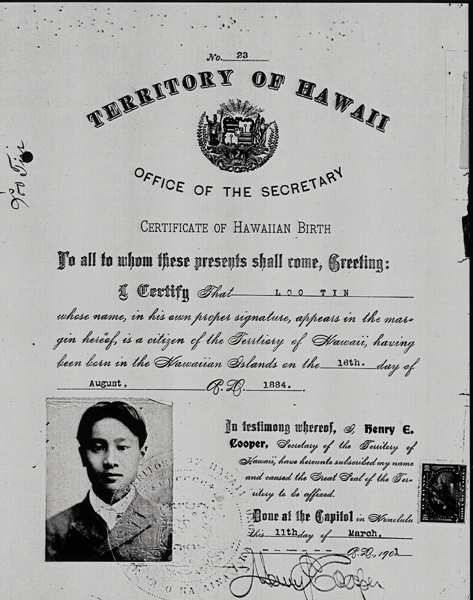 No. 23
TERRITORY OF HAWAII
OFFICE OF THE SECRETARY
CERTIFICATE OF HAWAIIAN BIRTH
To all to whom these presents shall come, Greeting:
I Certify That LOO TIN
whose name, in his own proper signature, appears in the mar-
gin hereof, is a citizen of the Territiory of Hawaii, having
been born in the Hawaiian Islands on the 16th. day of
August, A. D. 1884.
Loo Tin
In testimony whereof, I, Henry E.
Cooper, Secretary of the Territory of
Hawaii, have hereunto subscribed my name
and caused the Great Seal of the Ter-
ritory to be affixed.
Done at the Capitol in Honolulu
this 11th day of March,
A. D., 1901
Henry E. Cooper